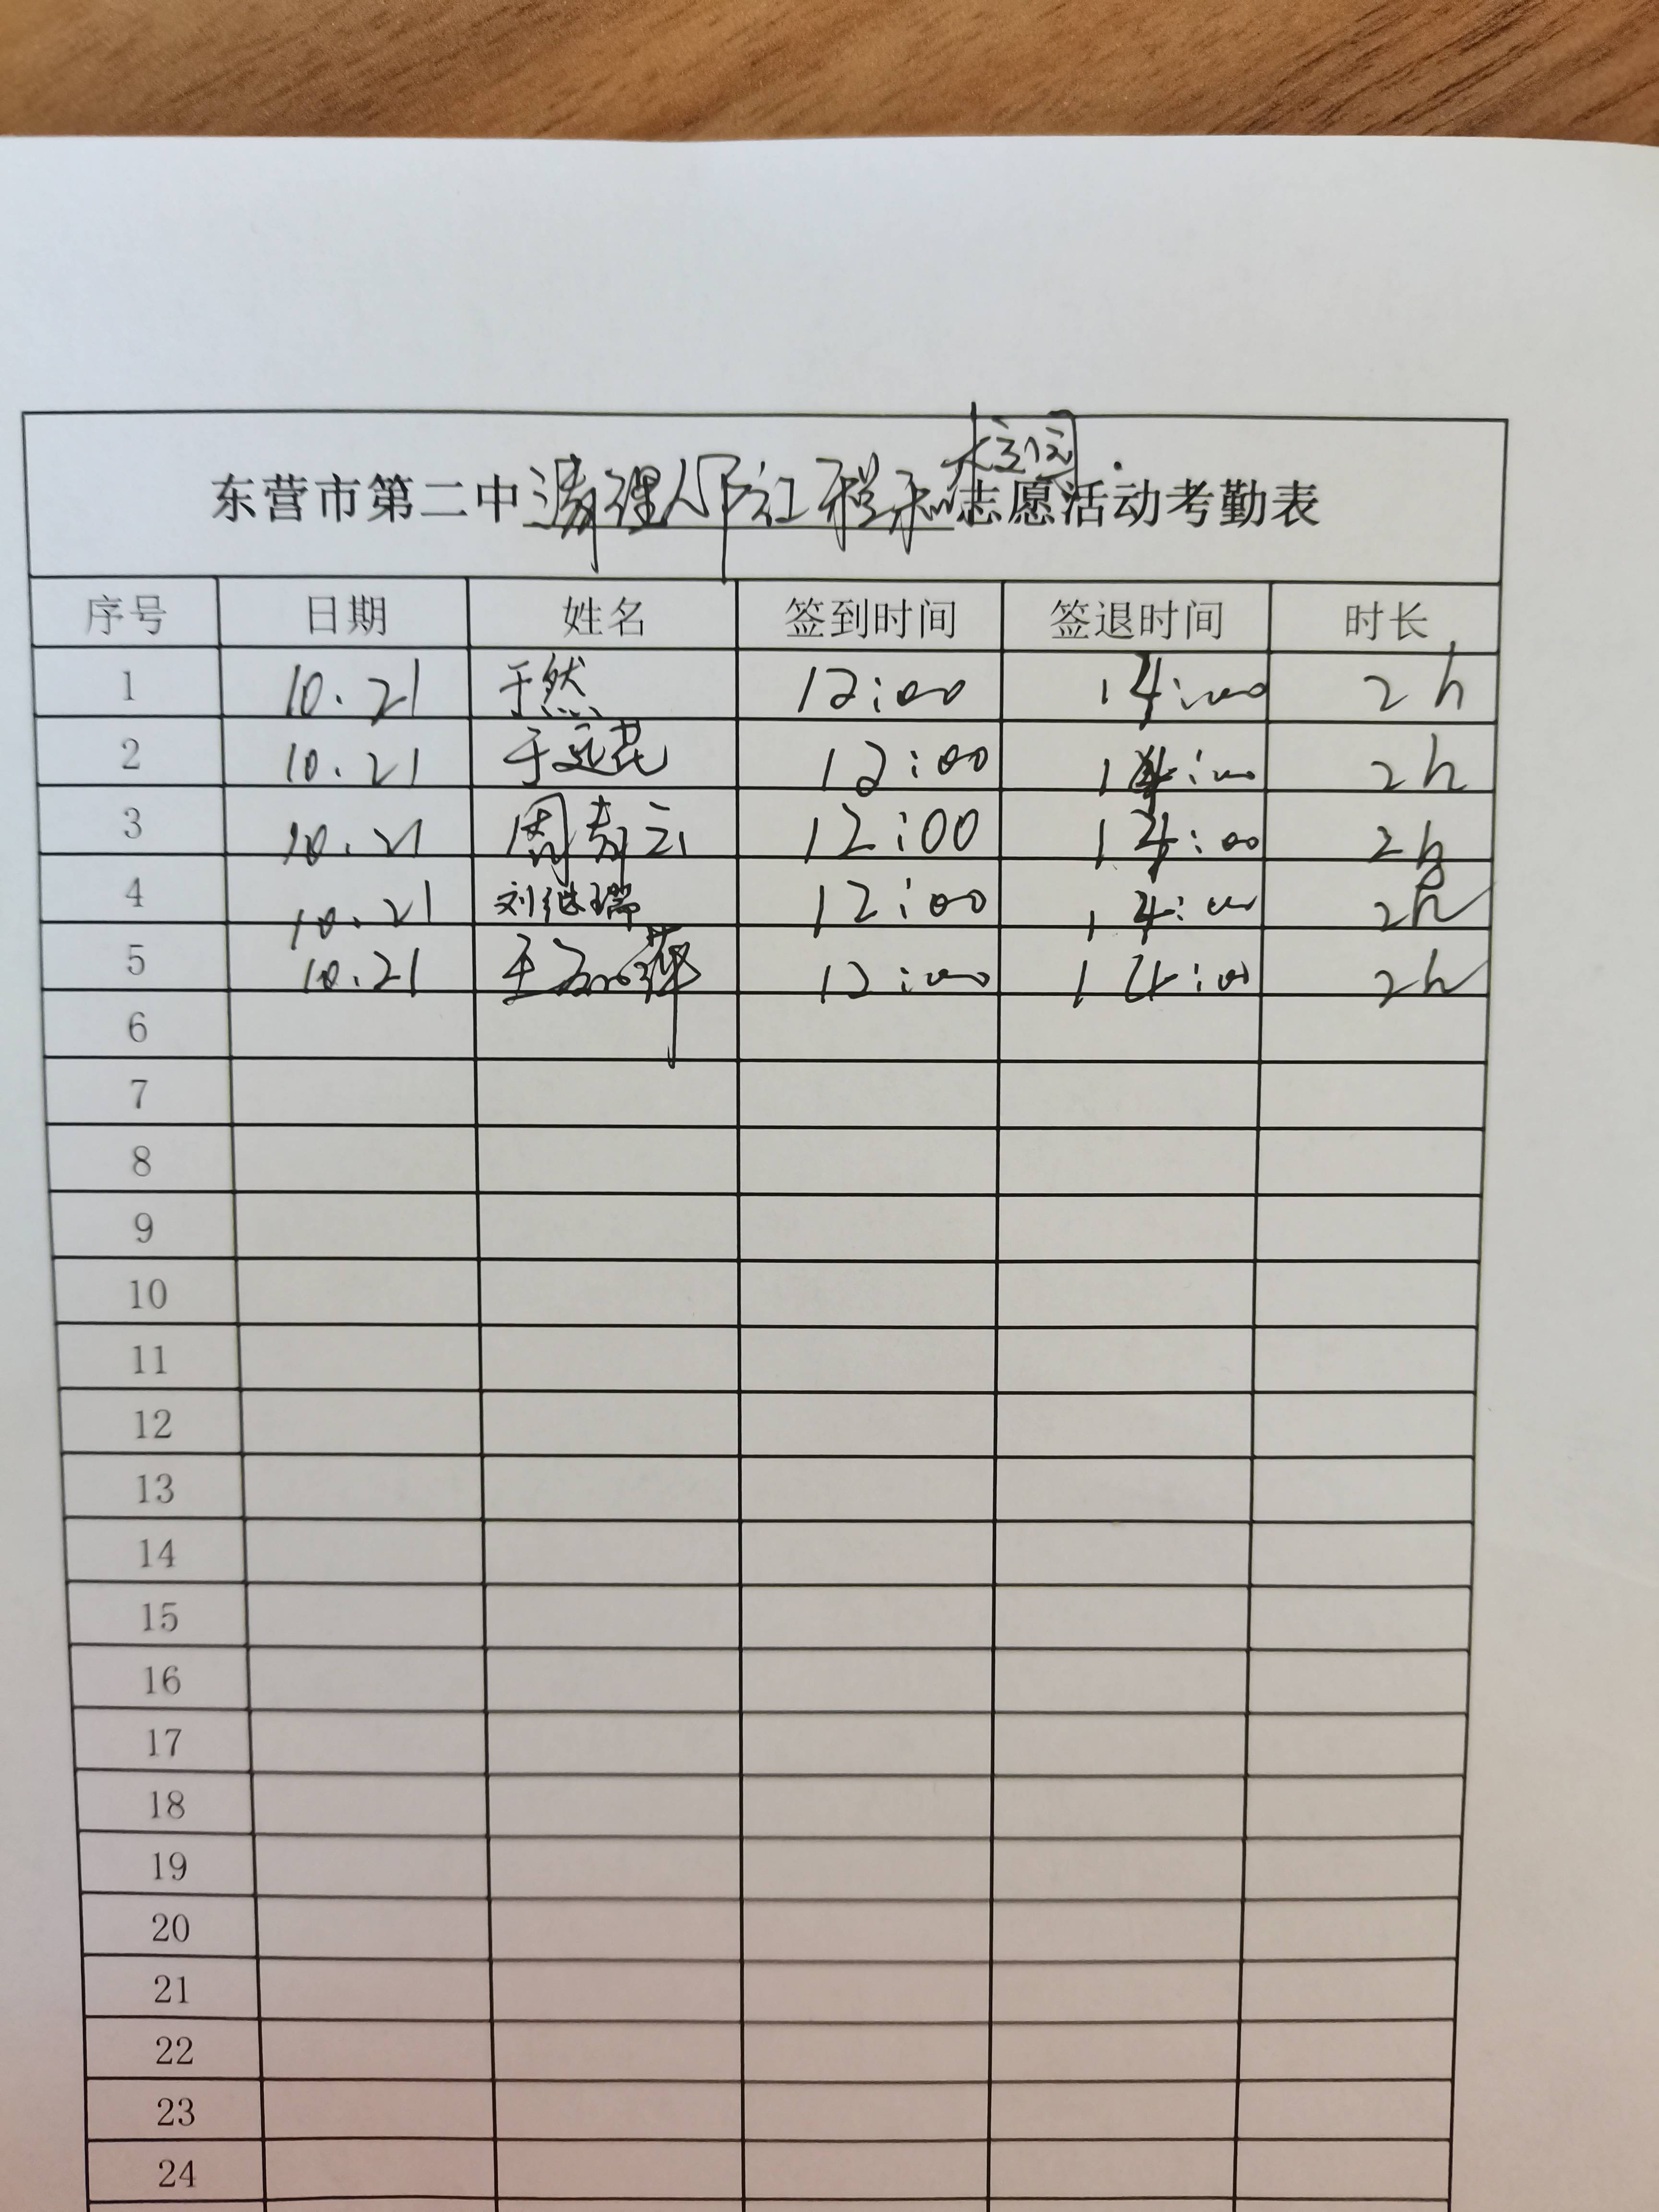 东营市第二中清理人防工程和志愿活动考勤表
序号 日期 姓名 签到时间 签退时间 时长
1 10.21 于然 12:00 14:00 2h
2 10.21 于 12:00 14:00 2h
3 10.21 周 云 12:00 14:00 2h
4 10.21 刘继瑞 12:00 14:00 2h
5 10.21 王 萍 12:00 14:00 2h
6
7
8
9
10
11
12
13
14
15
16
17
18
19
20
21
22
23
24